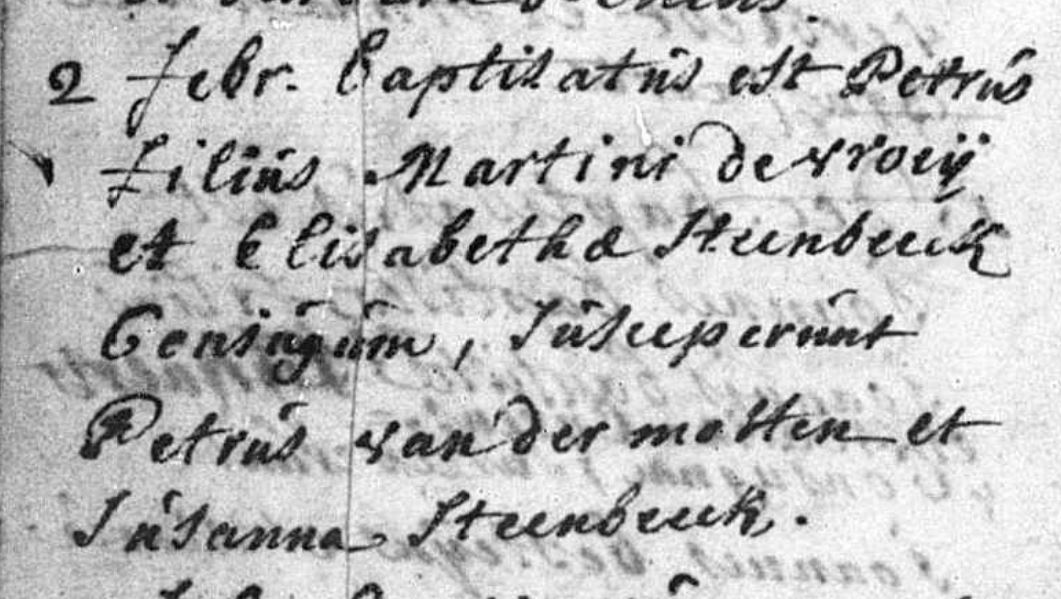 2 febr. baptisatus est Petrus
filius Martini de vroeij
et Elisabethæ Steenbeeck
Coniugum, Susceperunt
Petrus van der motten et
Susanna Steenbeeck.